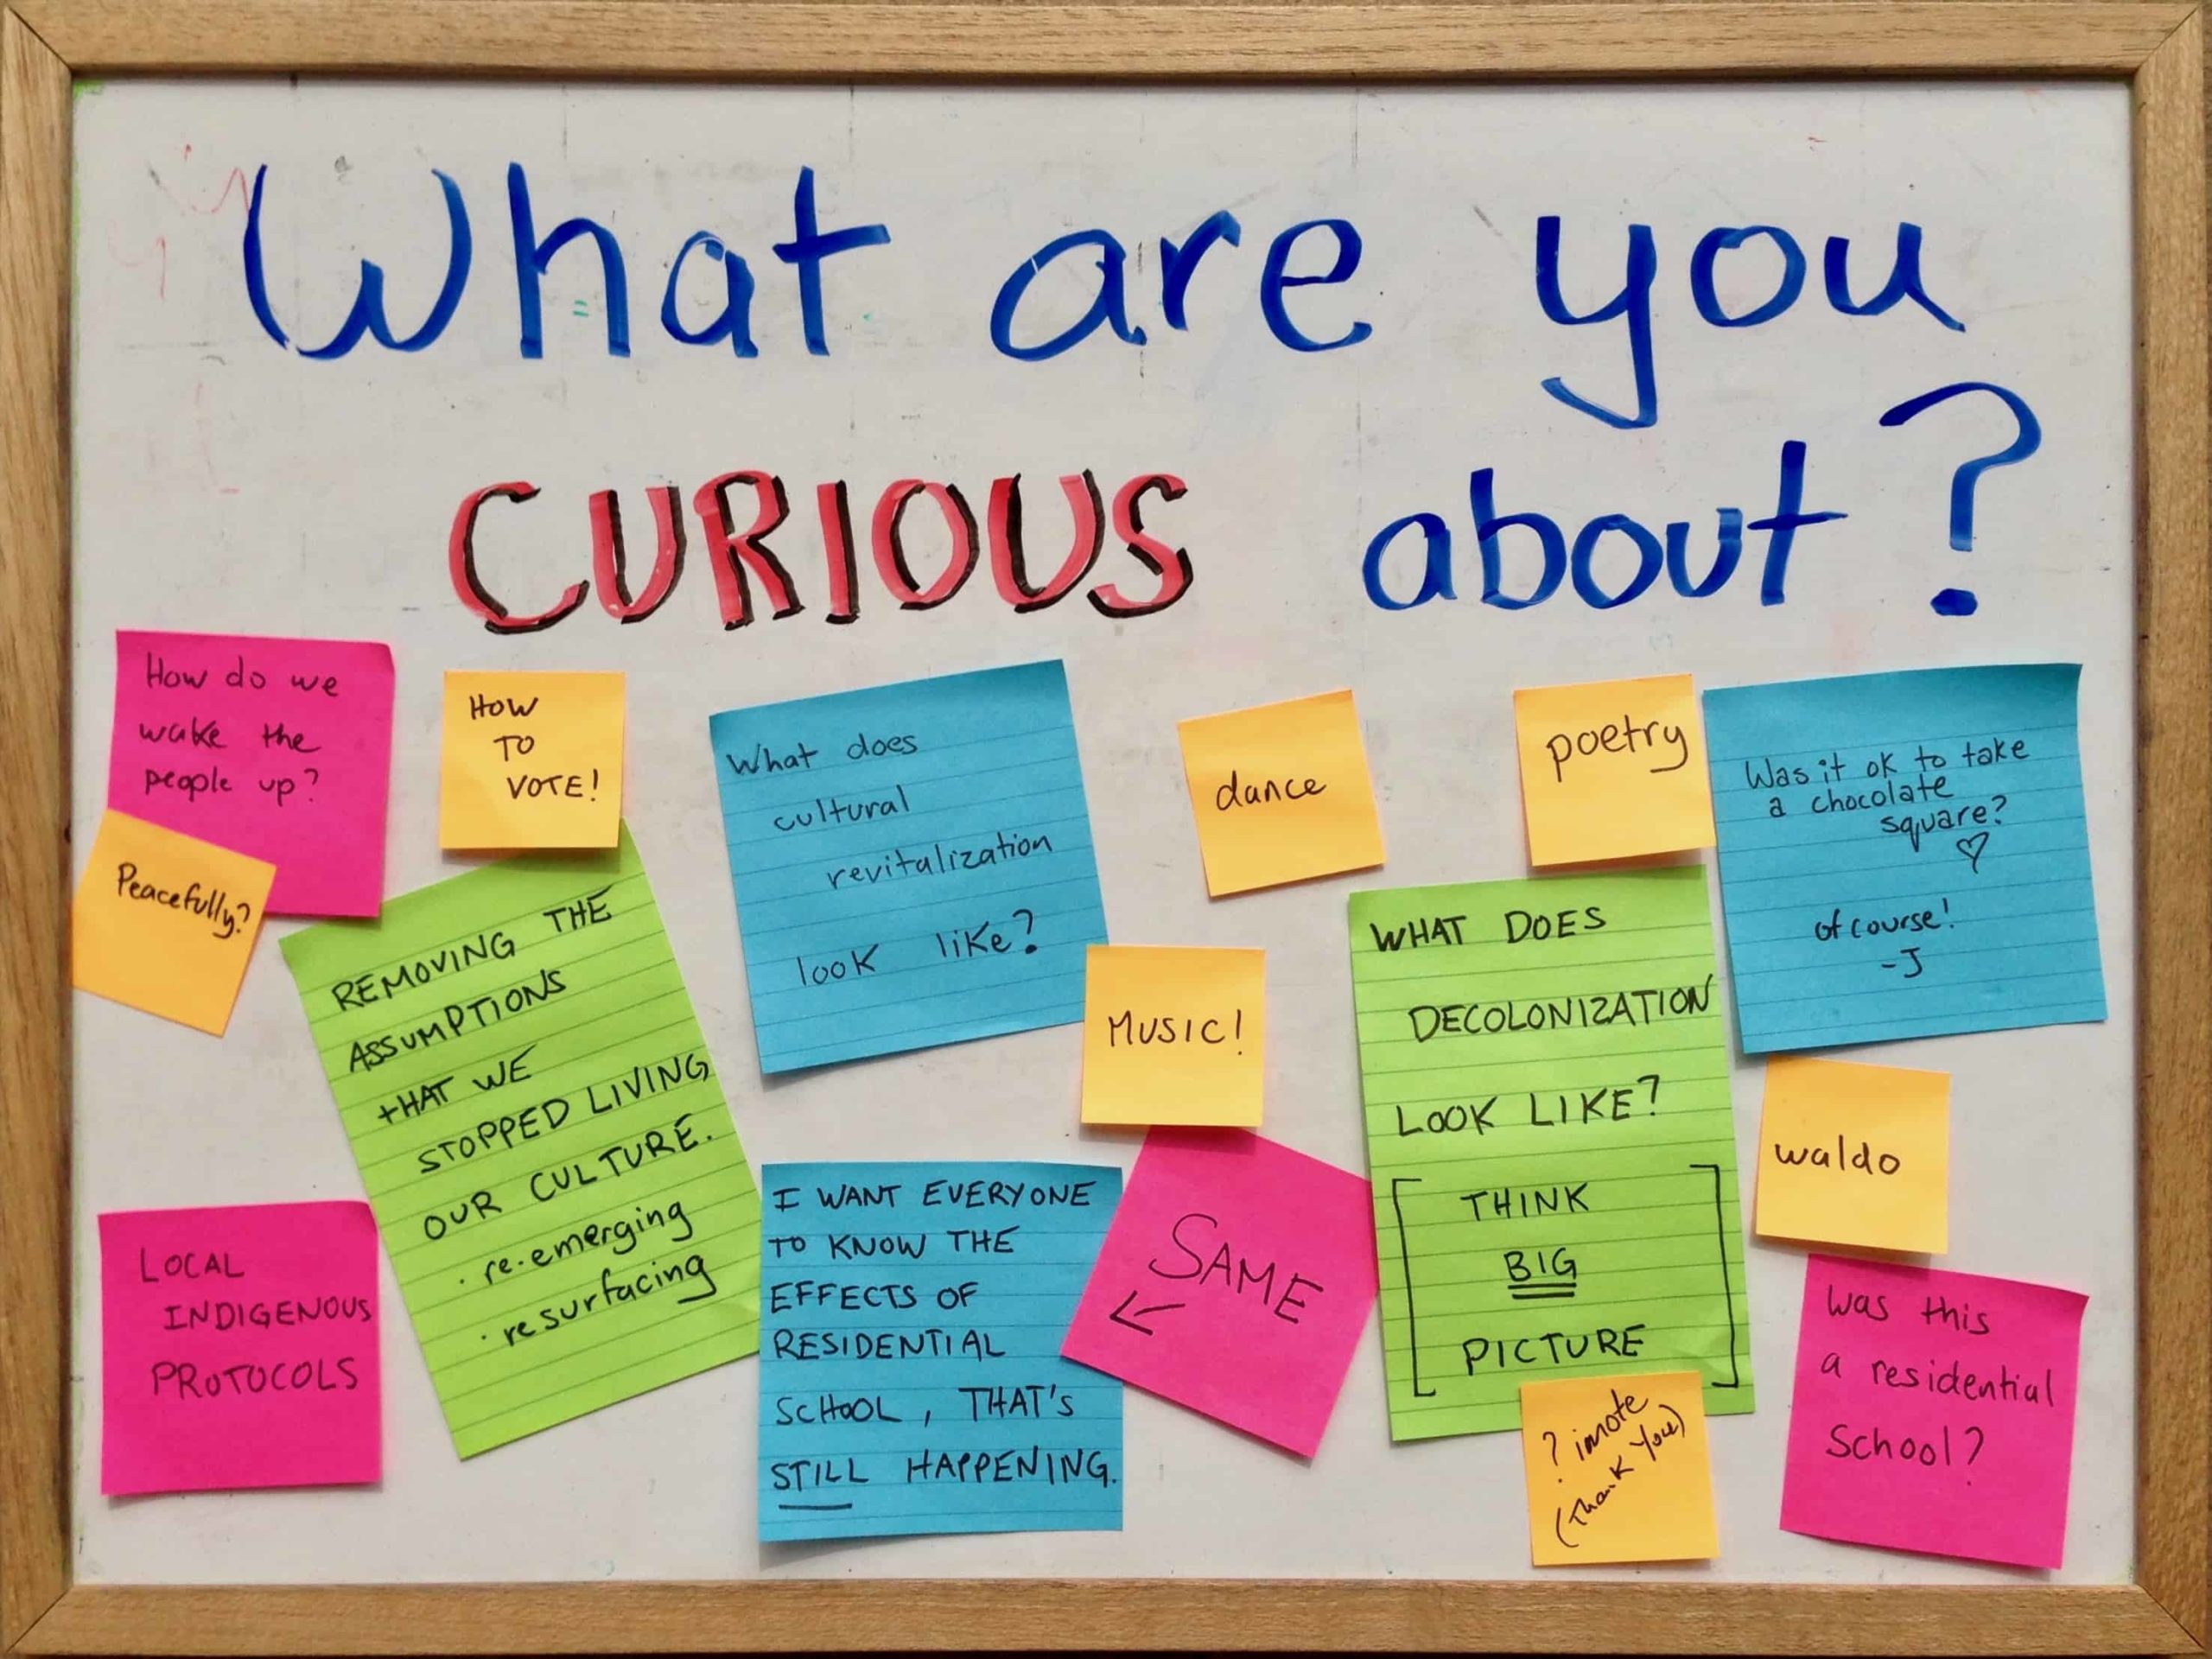 What are you
CURIOUS about?
How do we
wake the
people up?
Peacefully?
HOW
TO
VOTE!
REMOVING THE
ASSUMPTIONS
THAT WE
STOPPED LIVING
OUR CULTURE.
· re-emerging
· resurfacing
LOCAL
INDIGENOUS
PROTOCOLS
What does
cultural
revitalization
look like?
I WANT EVERYONE
TO KNOW THE
EFFECTS OF
RESIDENTIAL
SCHOOL, THAT'S
STILL HAPPENING.
SAME
←
dance
MUSIC!
poetry
WHAT DOES
DECOLONIZATION
LOOK LIKE?
[THINK
BIG
PICTURE]
?
(Thank You)
Was it ok to take
a chocolate
square?
♡
of course!
-J
waldo
Was this
a residential
School?